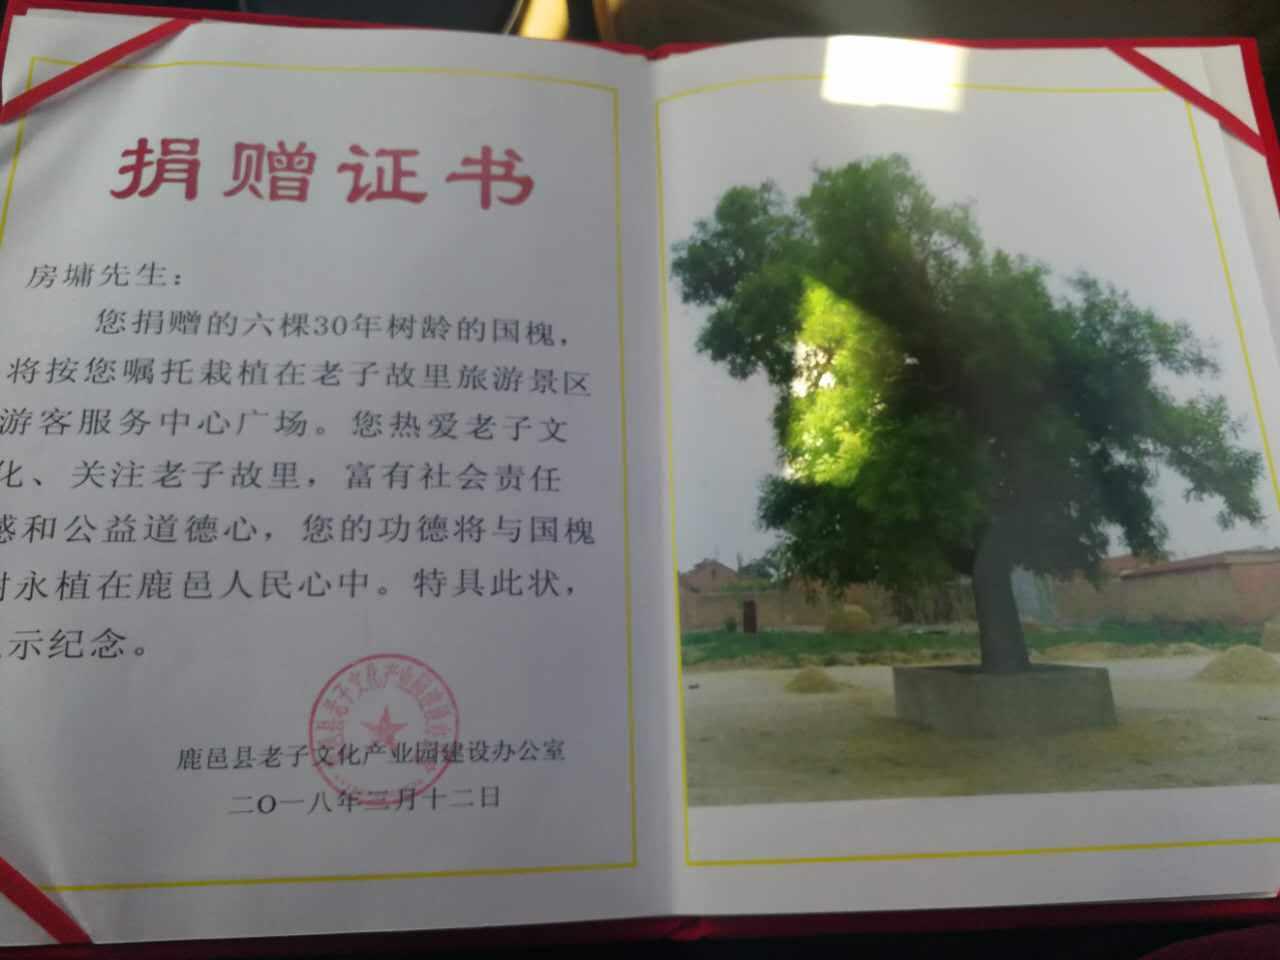 捐赠证书
房墉先生：
您捐赠的六棵30年树龄的国槐，
将按您嘱托栽植在老子故里旅游景区
游客服务中心广场。您热爱老子文
化、关注老子故里，富有社会责任
感和公益道德心，您的功德将与国槐
树永植在鹿邑人民心中。特具此状，
示纪念。
鹿邑县老子文化产业园建设办公室
二〇一八年三月十二日